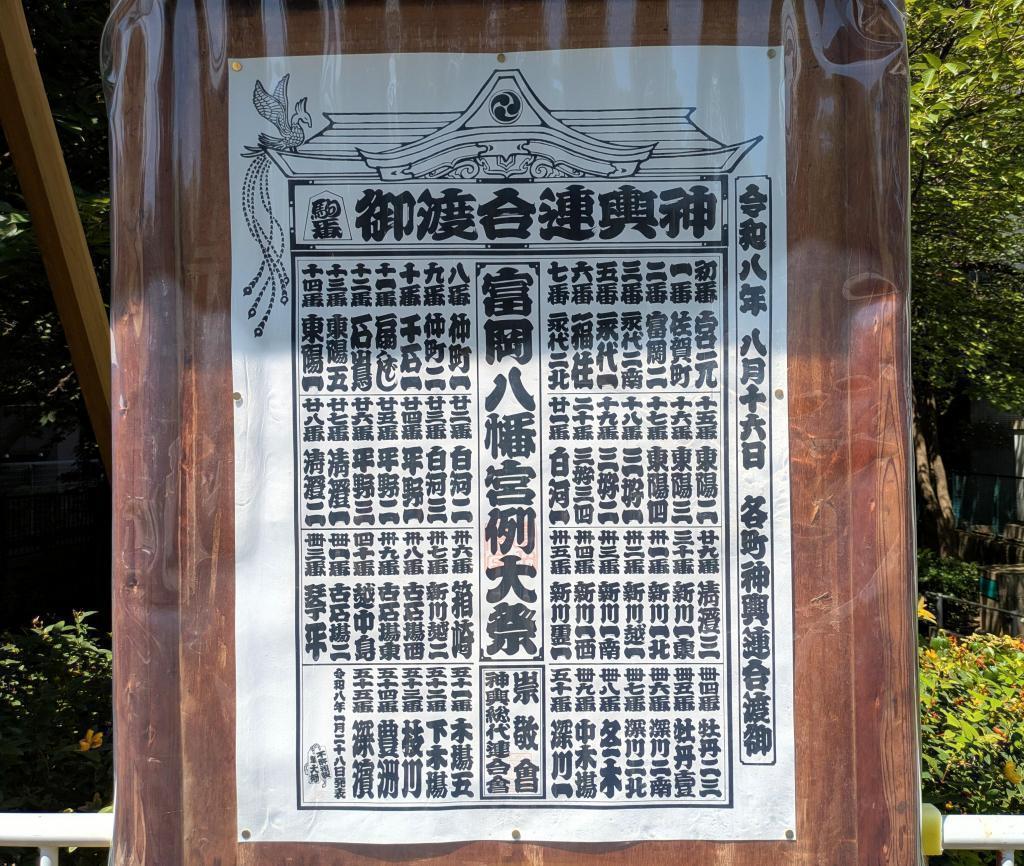 令和八年 八月十六日 各町神輿連合渡御
神輿連合渡御
駒番
初番 宮元
一番 佐賀町
二番 富岡二
三番 永代二南
五番 永代一
六番 福住
七番 永代二北
富岡八幡宮例大祭
八番 仲町一
九番 仲町二
十番 千石一
十一番 扇
十二番 石島
十三番 東陽五
十四番 東陽一
十五番 東陽二
十六番 東陽三
十七番 東陽四
十八番 三好一
十九番 三好二
二十番 三好三四
廿一番 白河一
廿二番 白河二
廿三番 白河三
廿四番 平野一
廿五番 平野二
廿六番 平野三
廿七番 清澄一
廿八番 清澄二
廿九番 清澄三
三十番 新川一東
卅一番 新川一北
卅二番 新川越一
卅三番 新川一南
卅四番 新川一西
卅五番 新川
卅六番 箱崎
卅七番 新川越二
卅八番 古石場西
卅九番 古石場東
四十番 越中島
卌一番 古石場二
卌三番 琴平
卌四番 牡丹二三
卌五番 牡丹壹
卌六番 深川二南
卌七番 深川二北
卌八番 冬木
卌九番 中木場
五十番 深川一
崇敬會
神輿総代連合會
五十一番 木場五
五十二番 下木場
五十三番 枝川
五十四番 豊洲
五十五番 深濱
令和八年一月二十八日発表